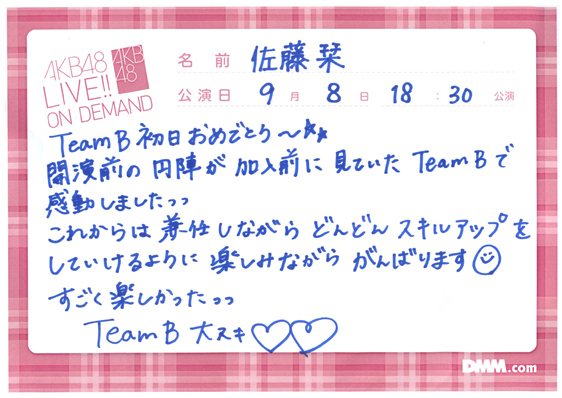 AKB48
LIVE!!
ON DEMAND
AKB
48
名前 佐藤栞
公演日 9月8日 18:30 公演
TeamB 初日おめでとう〜☆☆
開演前の円陣が加入前に見ていたTeamBで
感動しましたっっ
これからは兼任しながらどんどんスキルアップを
していけるように楽しみながらがんばります☺
すごく楽しかったっっ
TeamB 大スキ♡♡
DMM.com